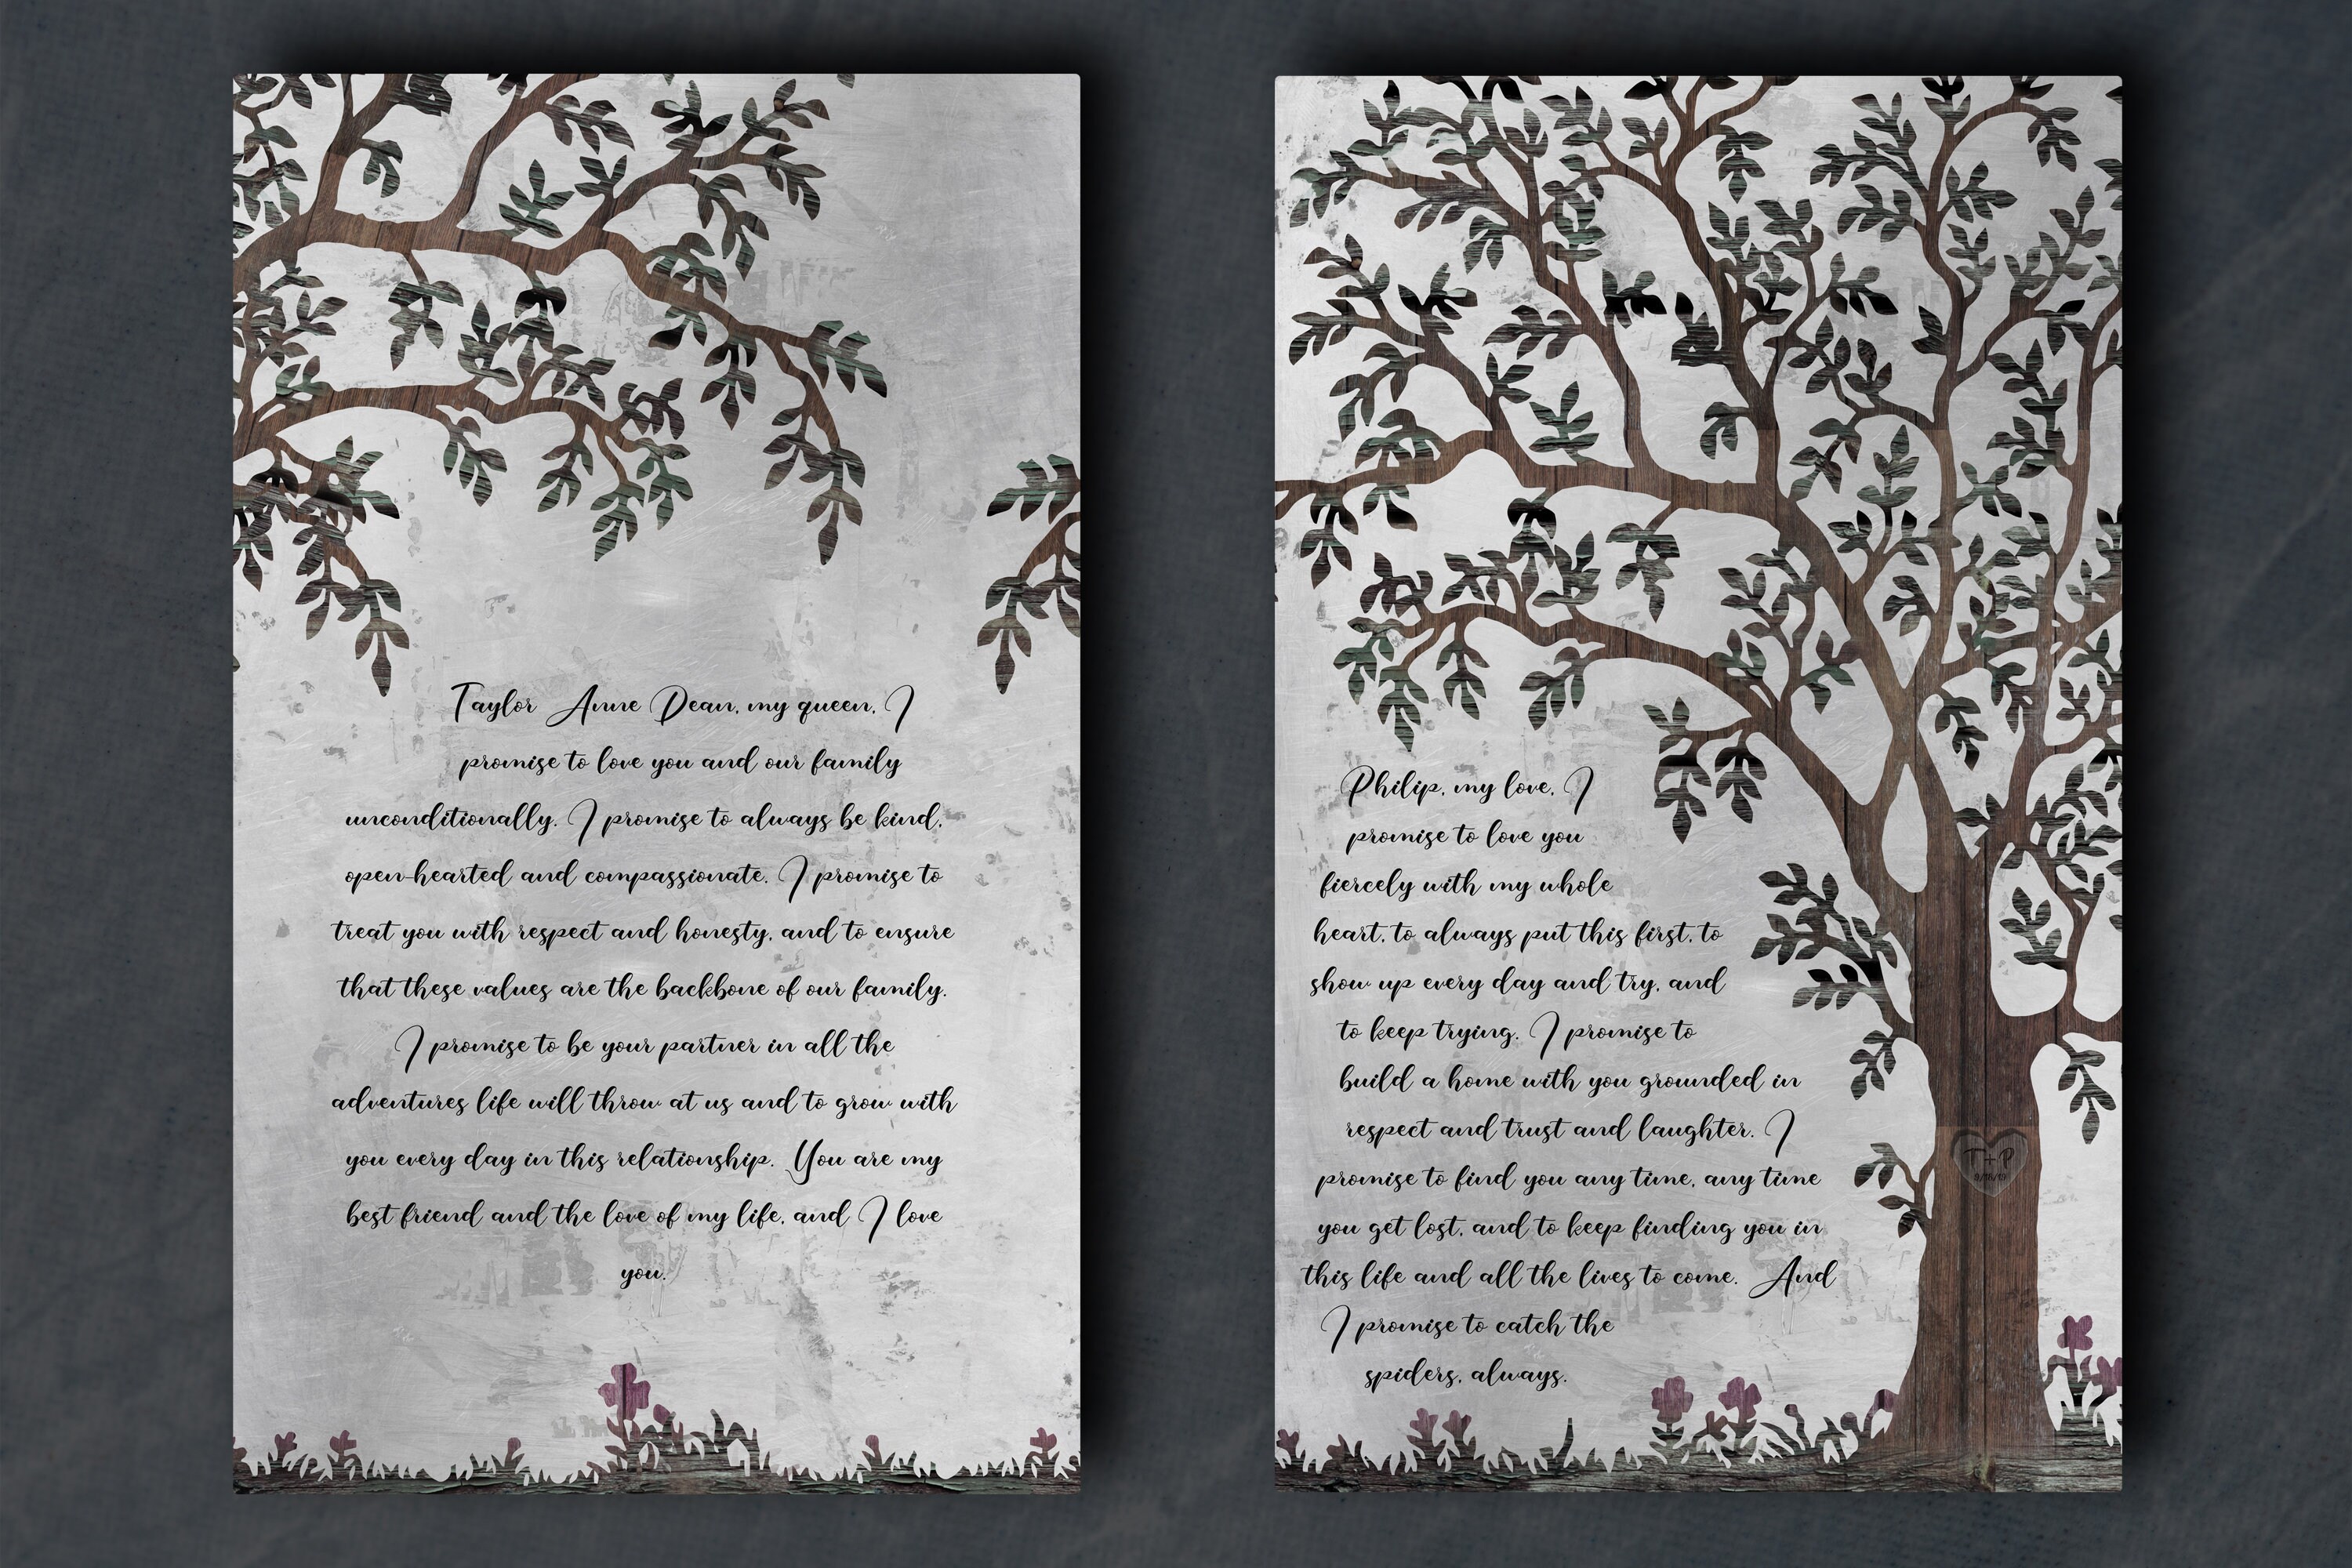 Taylor Anne Dean, my queen, I
promise to love you and our family
unconditionally. I promise to always be kind,
open-hearted and compassionate. I promise to
treat you with respect and honesty, and to ensure
that these values are the backbone of our family.
I promise to be your partner in all the
adventures life will throw at us and to grow with
you every day in this relationship. You are my
best friend and the love of my life, and I love
you.
Philip, my love, I
promise to love you
fiercely with my whole
heart, to always put this first, to
show up every day and try, and
to keep trying. I promise to
build a home with you grounded in
respect and trust and laughter. I
promise to find you any time, any time
you get lost, and to keep finding you in
this life and all the lives to come. And
I promise to catch the
spiders, always.
T+P